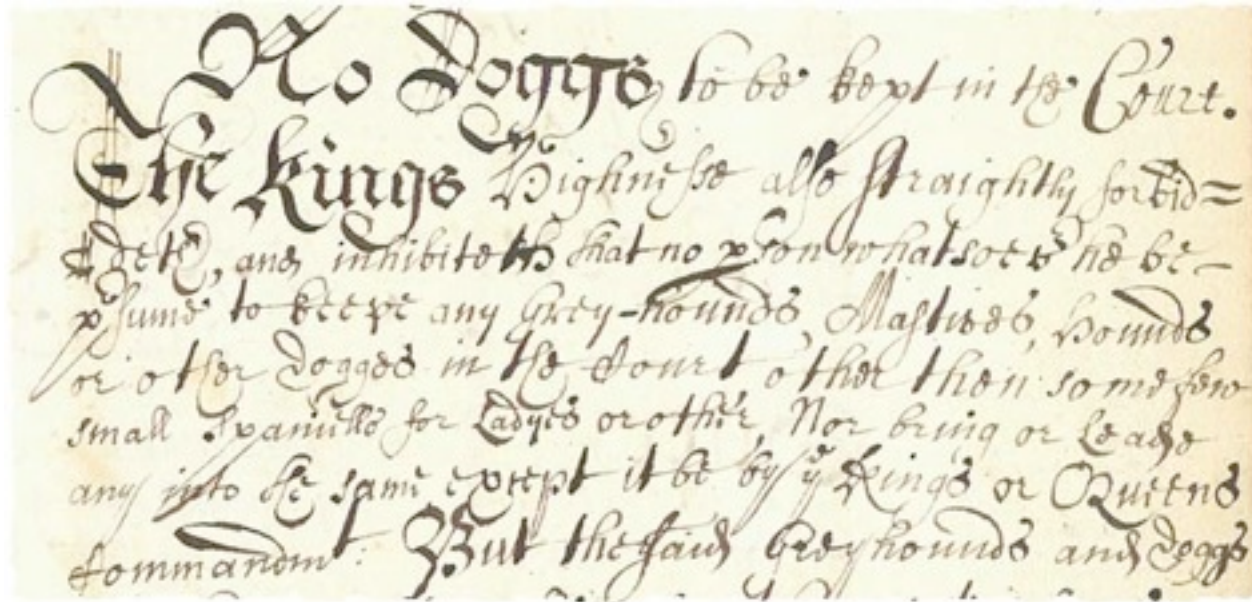 No Doggs to be kept in the Court.
The Kings Highnesse also straightly forbid=
deth, and inhibiteth that no pson whatsoevr he be
psume to keepe any Grey-hounds, Mastives, hounds
or other Dogges in the Court other then some few
small Spaniells for Ladyes or other, Nor bring or Leade
any into the same except it be by ye Kings or Queens
Commandmt. But the said Greyhounds and Doggs